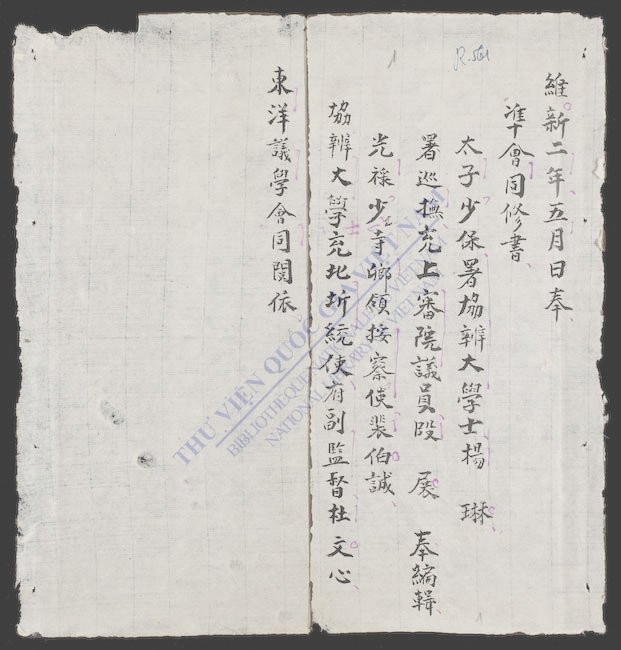 維新二年五月日奉
准會同修書
太子少保署協辨大學士楊 琳
署巡撫充上審院議員段 展 奉編輯
光祿少寺鄉領按察使裴伯誠
協辨大學充北圻統使府副監督杜文心
東洋議學會同閱依
R.561
1
1
THƯ VIỆN QUỐC GIA VIỆT NAM
BIBLIOTHÈQUE NATIONALE DU VIETNAM
NATIONAL LIBRARY OF VIETNAM